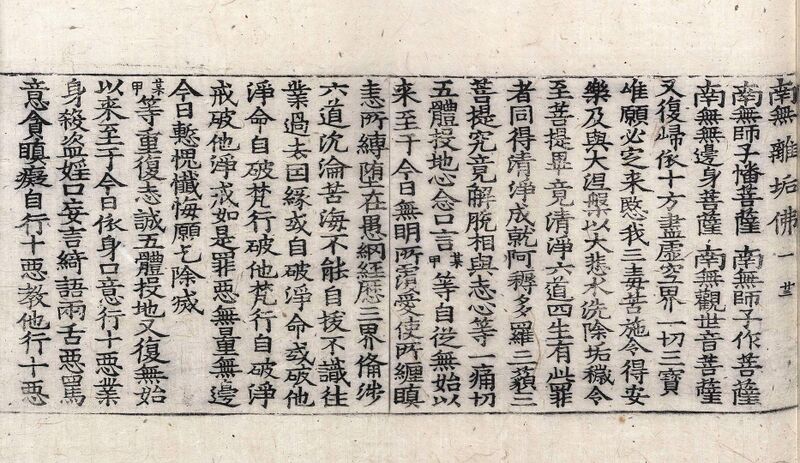 南無離垢佛 一 廿
南無師子幡菩薩 南無師子作菩薩
南無無邊身菩薩 南無觀世音菩薩
又復歸依十方盡虛空界一切三寶
唯願必定来愍我三毒苦施令得安
樂及與大涅槃以大悲水洗除垢穢令
至菩提畢竟清淨六道四生有此罪
者同得清淨成就阿耨多羅三藐三
菩提究竟解脫相與志心等一痛切
五體投地心念口言某甲等自從無始以
来至于今日無明所覆愛使所纏瞋
恚所縛墮在愚網經歷三界備涉
六道沉淪苦海不能自拔不識往
業過去因緣或自破淨命或破他
淨命自破梵行破他梵行自破淨
戒破他淨戒如是罪惡無量無邊
今日慙愧懺悔願乞除滅
某甲等重復志誠五體投地又復無始
以来至于今日依身口意行十惡業
身殺盜婬口妄言綺語兩舌惡罵
意貪瞋癡自行十惡教他行十惡